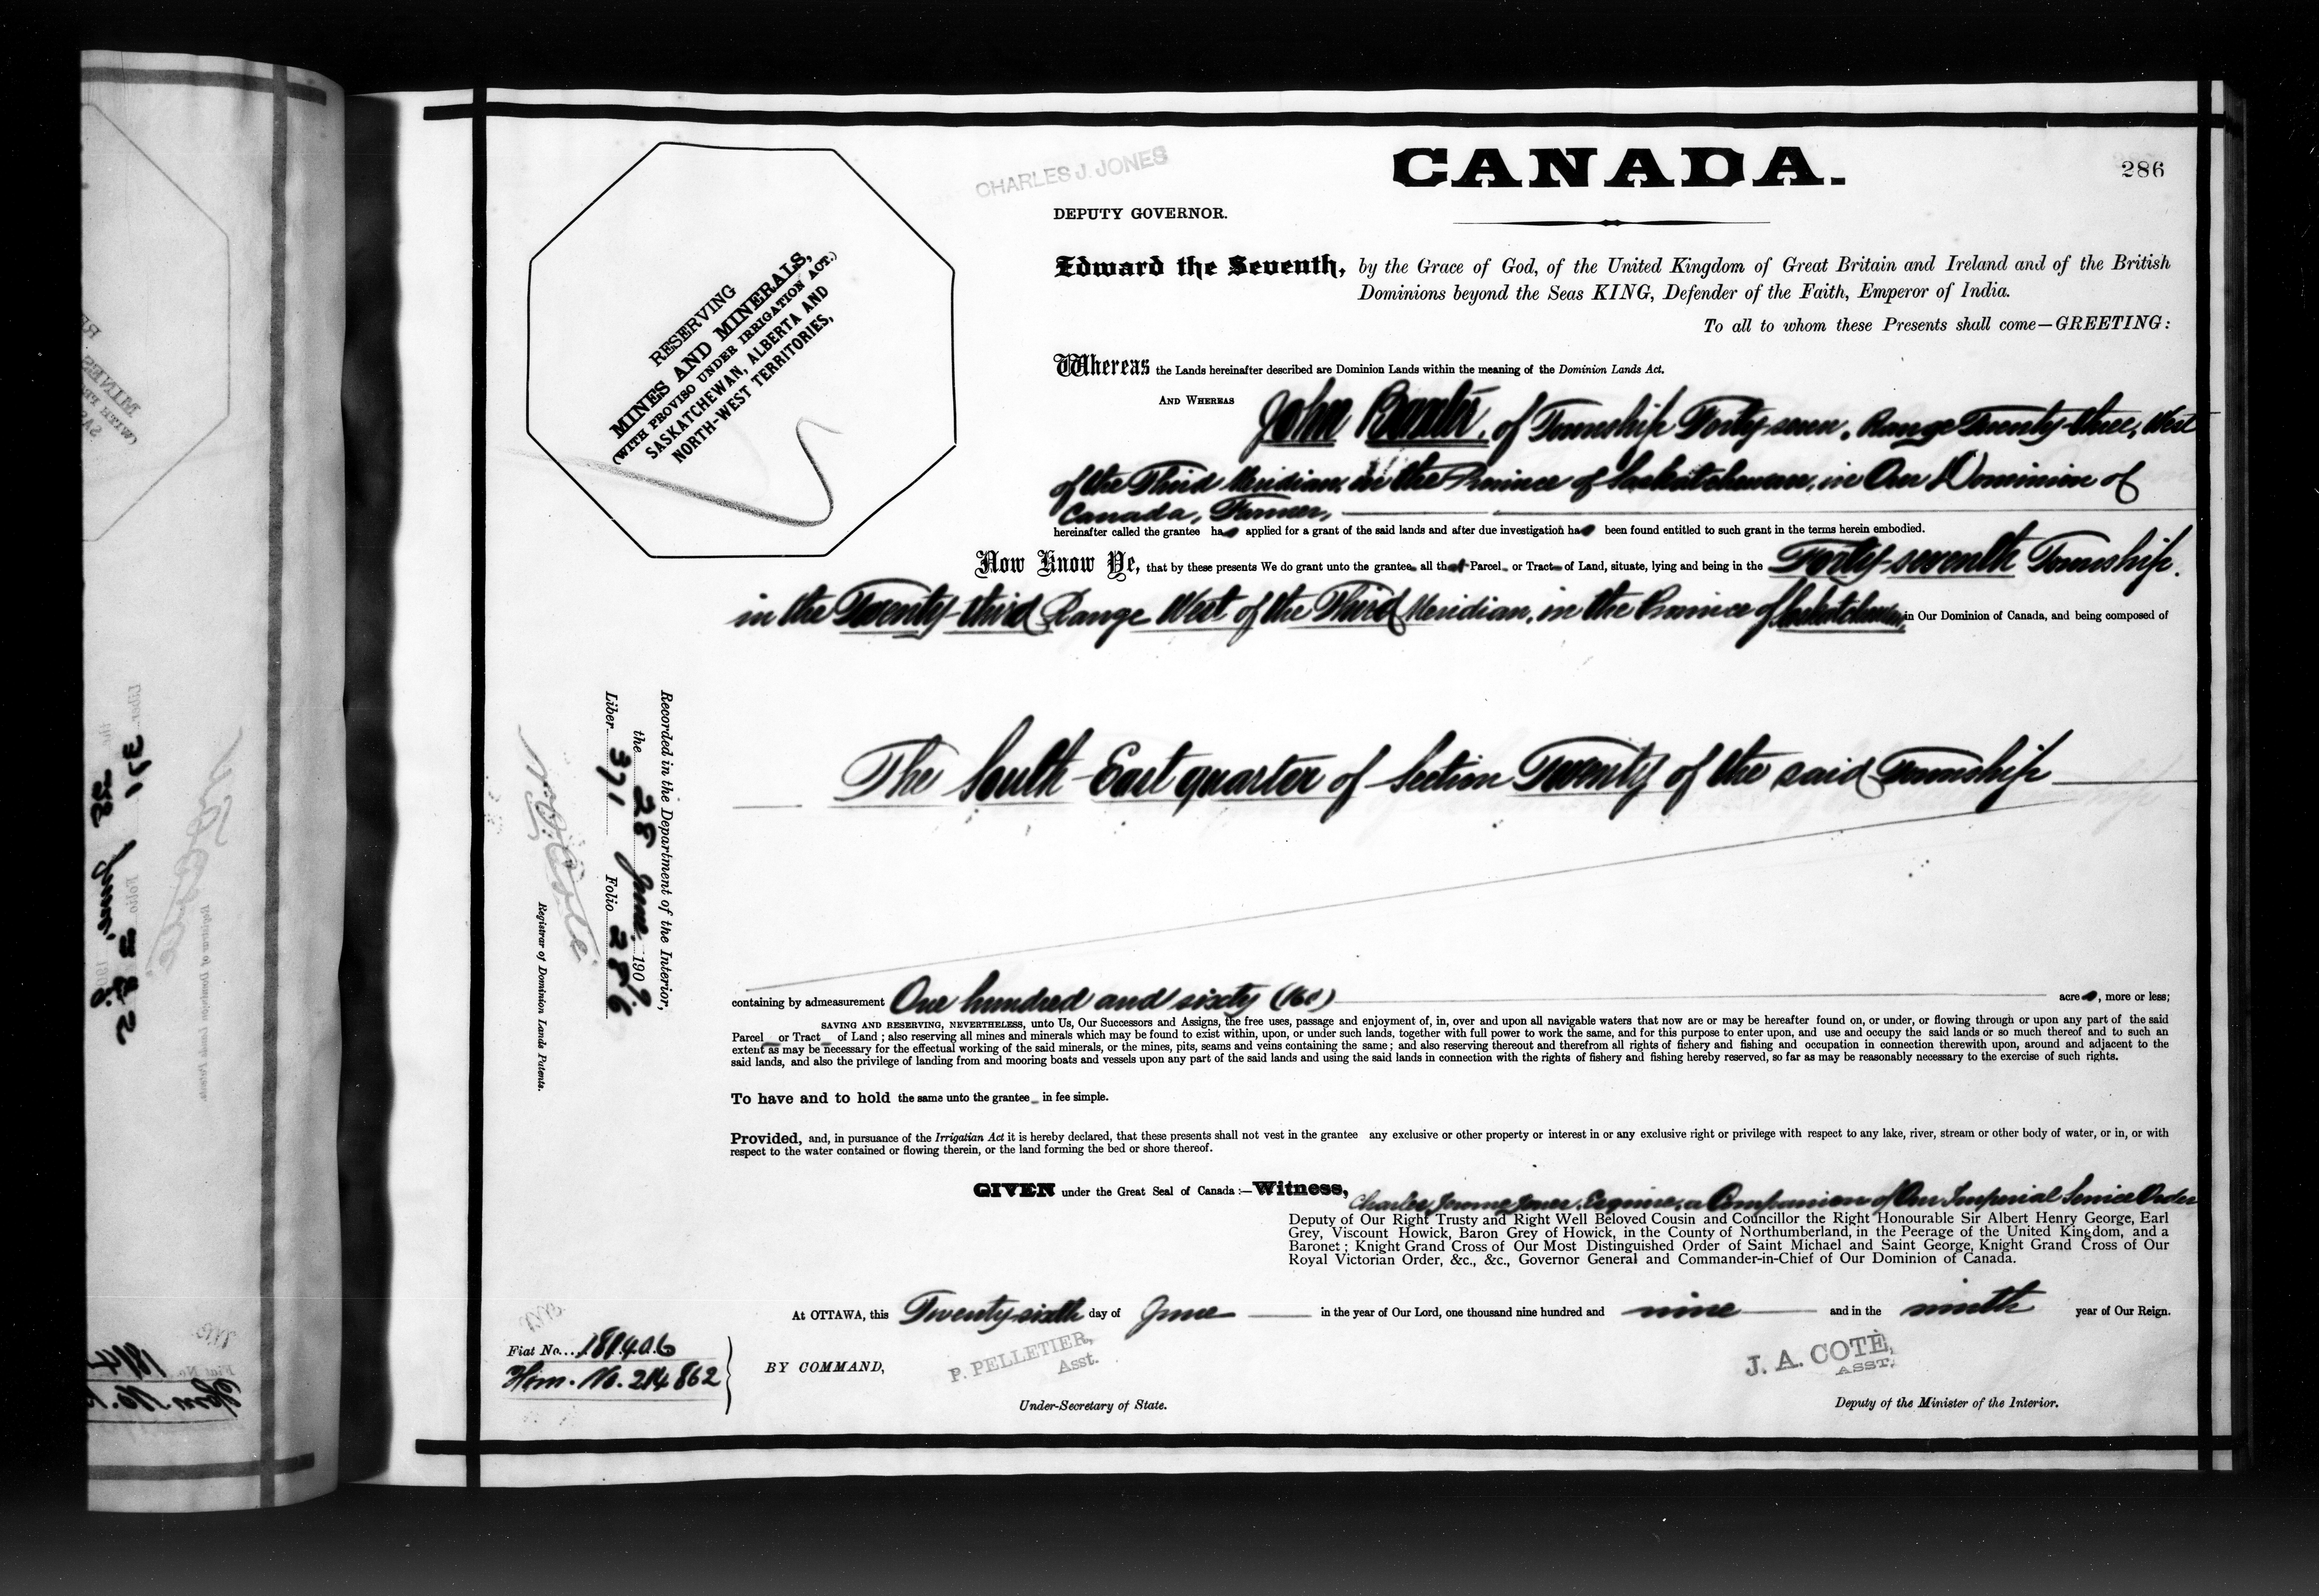 CANADA.
286
CHARLES J. JONES
DEPUTY GOVERNOR.
RESERVING
MINES AND MINERALS,
(WITH PROVISO UNDER IRRIGATION ACT.)
SASKATCHEWAN, ALBERTA AND
NORTH-WEST TERRITORIES,
Edward the Seventh, by the Grace of God, of the United Kingdom of Great Britain and Ireland and of the British
Dominions beyond the Seas KING, Defender of the Faith, Emperor of India.
To all to whom these Presents shall come—GREETING:
Whereas the Lands hereinafter described are Dominion Lands within the meaning of the Dominion Lands Act.
AND WHEREAS John Baxter, of Township Forty-seven, Range Twenty-three, West
of the Third Meridian, in the Province of Saskatchewan, in Our Dominion of
Canada, Farmer,
hereinafter called the grantee has applied for a grant of the said lands and after due investigation has been found entitled to such grant in the terms herein embodied.
Now Know Ye, that by these presents We do grant unto the grantee all that Parcel or Tract of Land, situate, lying and being in the Forty-seventh Township,
in the Twenty-third Range West of the Third Meridian, in the Province of Saskatchewan, in Our Dominion of Canada, and being composed of
The South-East quarter of Section Twenty of the said Township
containing by admeasurement One hundred and sixty (160) acres, more or less;
SAVING AND RESERVING, NEVERTHELESS, unto Us, Our Successors and Assigns, the free uses, passage and enjoyment of, in, over and upon all navigable waters that now are or may be hereafter found on, or under, or flowing through or upon any part of the said
Parcel or Tract of Land; also reserving all mines and minerals which may be found to exist within, upon, or under such lands, together with full power to work the same, and for this purpose to enter upon, and use and occupy the said lands or so much thereof and to such an
extent as may be necessary for the effectual working of the said minerals, or the mines, pits, seams and veins containing the same; and also reserving thereout and therefrom all rights of fishery and fishing and occupation in connection therewith upon, around and adjacent to the
said lands, and also the privilege of landing from and mooring boats and vessels upon any part of the said lands and using the said lands in connection with the rights of fishery and fishing hereby reserved, so far as may be reasonably necessary to the exercise of such rights.
To have and to hold the same unto the grantee in fee simple.
Provided, and, in pursuance of the Irrigatian Act it is hereby declared, that these presents shall not vest in the grantee any exclusive or other property or interest in or any exclusive right or privilege with respect to any lake, river, stream or other body of water, or in, or with
respect to the water contained or flowing therein, or the land forming the bed or shore thereof.
GIVEN under the Great Seal of Canada:—Witness, Charles Jerome Jones, Esquire, a Companion of Our Imperial Service Order
Deputy of Our Right Trusty and Right Well Beloved Cousin and Councillor the Right Honourable Sir Albert Henry George, Earl
Grey, Viscount Howick, Baron Grey of Howick, in the County of Northumberland, in the Peerage of the United Kingdom, and a
Baronet; Knight Grand Cross of Our Most Distinguished Order of Saint Michael and Saint George, Knight Grand Cross of Our
Royal Victorian Order, &c., &c., Governor General and Commander-in-Chief of Our Dominion of Canada.
At OTTAWA, this Twenty-sixth day of June in the year of Our Lord, one thousand nine hundred and nine and in the ninth year of Our Reign.
BY COMMAND,
P. PELLETIER,
Asst.
Under-Secretary of State.
J. A. COTÉ,
ASST.
Deputy of the Minister of the Interior.
Fiat No. 181406
Hom. No. 214862
Recorded in the Department of the Interior,
the 28 June 1909
Liber 371 Folio 286
Registrar of Dominion Lands Patents.